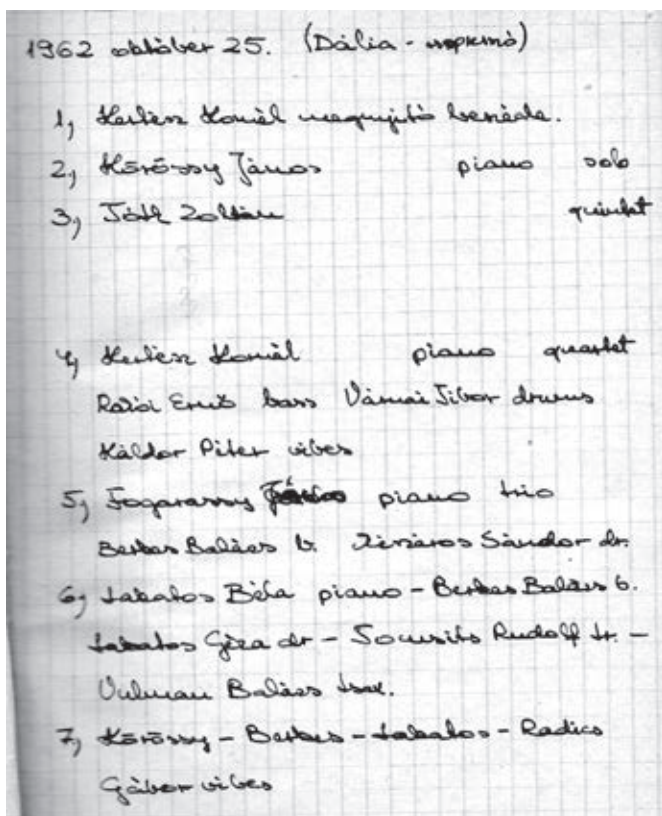 1962 október 25. (Dália - eszpresszó)
1, Kertész Kornél megnyitó beszéde.
2, Kőrössy János piano solo
3, Tóth Zoltán quintet
4, Kertész Kornél piano quartet
Rátói Ernő bass Várnai Tibor drums
Káldor Péter vibes
5, Fogarassy János piano trio
Berkes Balázs b. Sándor dr.
6, Lakatos Béla piano - Berkes Balázs b.
Lakatos Géza dr - Tomsits Rudolf tr. -
Vulman Balázs tsax.
7, Kőrössy - Berkes - Lakatos - Radics
Gábor vibes